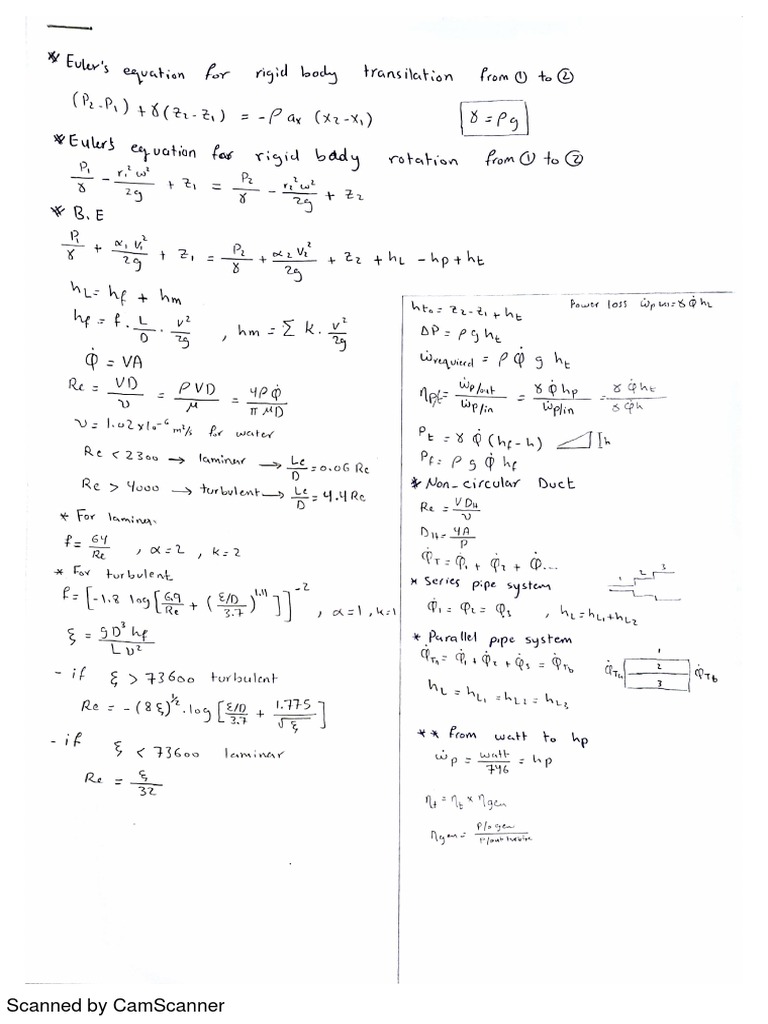 * Euler's equation for rigid body transilation from ① to ②
(P₂-P₁) + γ(z₂-z₁) = -ρ aₓ (x₂-x₁)
γ = ρg
* Euler's equation for rigid body rotation from ① to ②
P₁/γ - r₁²ω²/2g + z₁ = P₂/γ - r₂²ω²/2g + z₂
* B.E
P₁/γ + α₁V₁²/2g + z₁ = P₂/γ + α₂V₂²/2g + z₂ + hL - hp + ht
hL = hf + hm
hf = f · L/D · V²/2g , hm = Σ K · V²/2g
φ̇ = VA
Re = VD/υ = ρVD/μ = 4ρφ̇/πμD
υ = 1.02x10⁻⁶ m²/s for water
Re < 2300 → laminar → Le/D = 0.06 Re
Re > 4000 → turbulent → Le/D = 4.4 Re
* For lamina.
f = 64/Re , α = 2 , k = 2
* For turbulent
f = [-1.8 log[6.9/Re + (ε/D/3.7)^1.11]]^-2 , α = 1, k = 1
ξ = gD³hf/Lυ²
- if ξ > 73600 turbulent
Re = -(8ξ)^½ · log[ε/D/3.7 + 1.775/√ξ]
- if ξ < 73600 laminar
Re = ξ/32
hto = z₂-z₁ + ht
Power loss ẇp = γ φ̇ hL
ΔP = ρ g ht
ẇrequired = ρ φ̇ g ht
ηpt = ẇp/out/ẇp/in = γ φ̇ hp/ẇp/in = γ φ̇ ht/γ φ̇ h
Pt = γ φ̇ (hf-h) h
Pf = ρ g φ̇ hf
* Non-circular Duct
Re = VDH/υ
DH = 4A/P
φ̇T = φ̇₁ + φ̇₂ + φ̇...
* Series pipe system 1 2 3
φ̇₁ = φ̇₂ = φ̇₃ , hL = hL₁ + hL₂
* Parallel pipe system
φ̇Ta = φ̇₁ + φ̇₂ + φ̇₃ = φ̇Tb
φ̇Ta 1 2 3 φ̇Tb
hL = hL₁ = hL₂ = hL₃
** from watt to hp
ẇp = watt/746 = hp
ηt = ηt x ηgen
ηgen = P/o gen/P/out turbine
Scanned by CamScanner